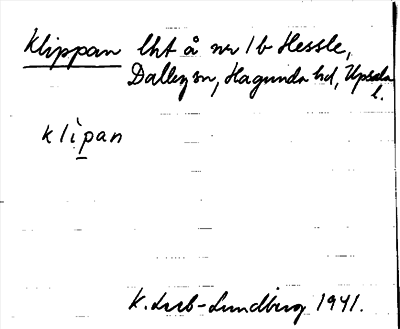 Klippan lht å nr 1b Hessle,
Dalby sn, Hagunda hd, Upsala
l.
klip̱an
K. Lreb-Lundberg 1941.